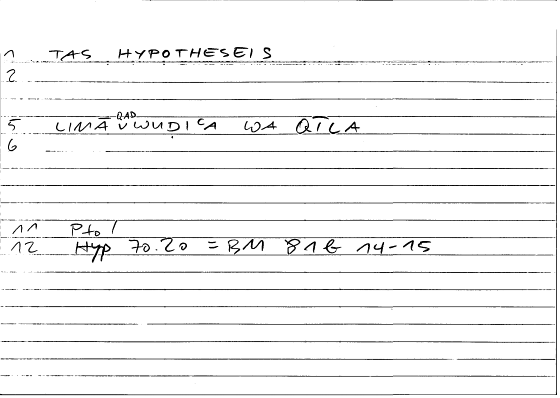 1 TAS HYPOTHESEIS
2
5 LIMĀ QAD VWUḌIʿA WA QĪLA
6
11 Ptol
12 Hyp 70.20 = BM 81b 14-15